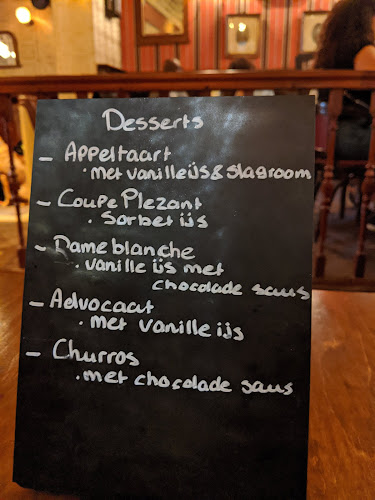 Desserts
- Appeltaart
. met vanilleijs & slagroom
- Coupe Plezant
. Sorbet ijs
- Dame blanche
. vanille ijs met
chocolade saus
- Advocaat
. met vanille ijs
- Churros
. met chocolade saus